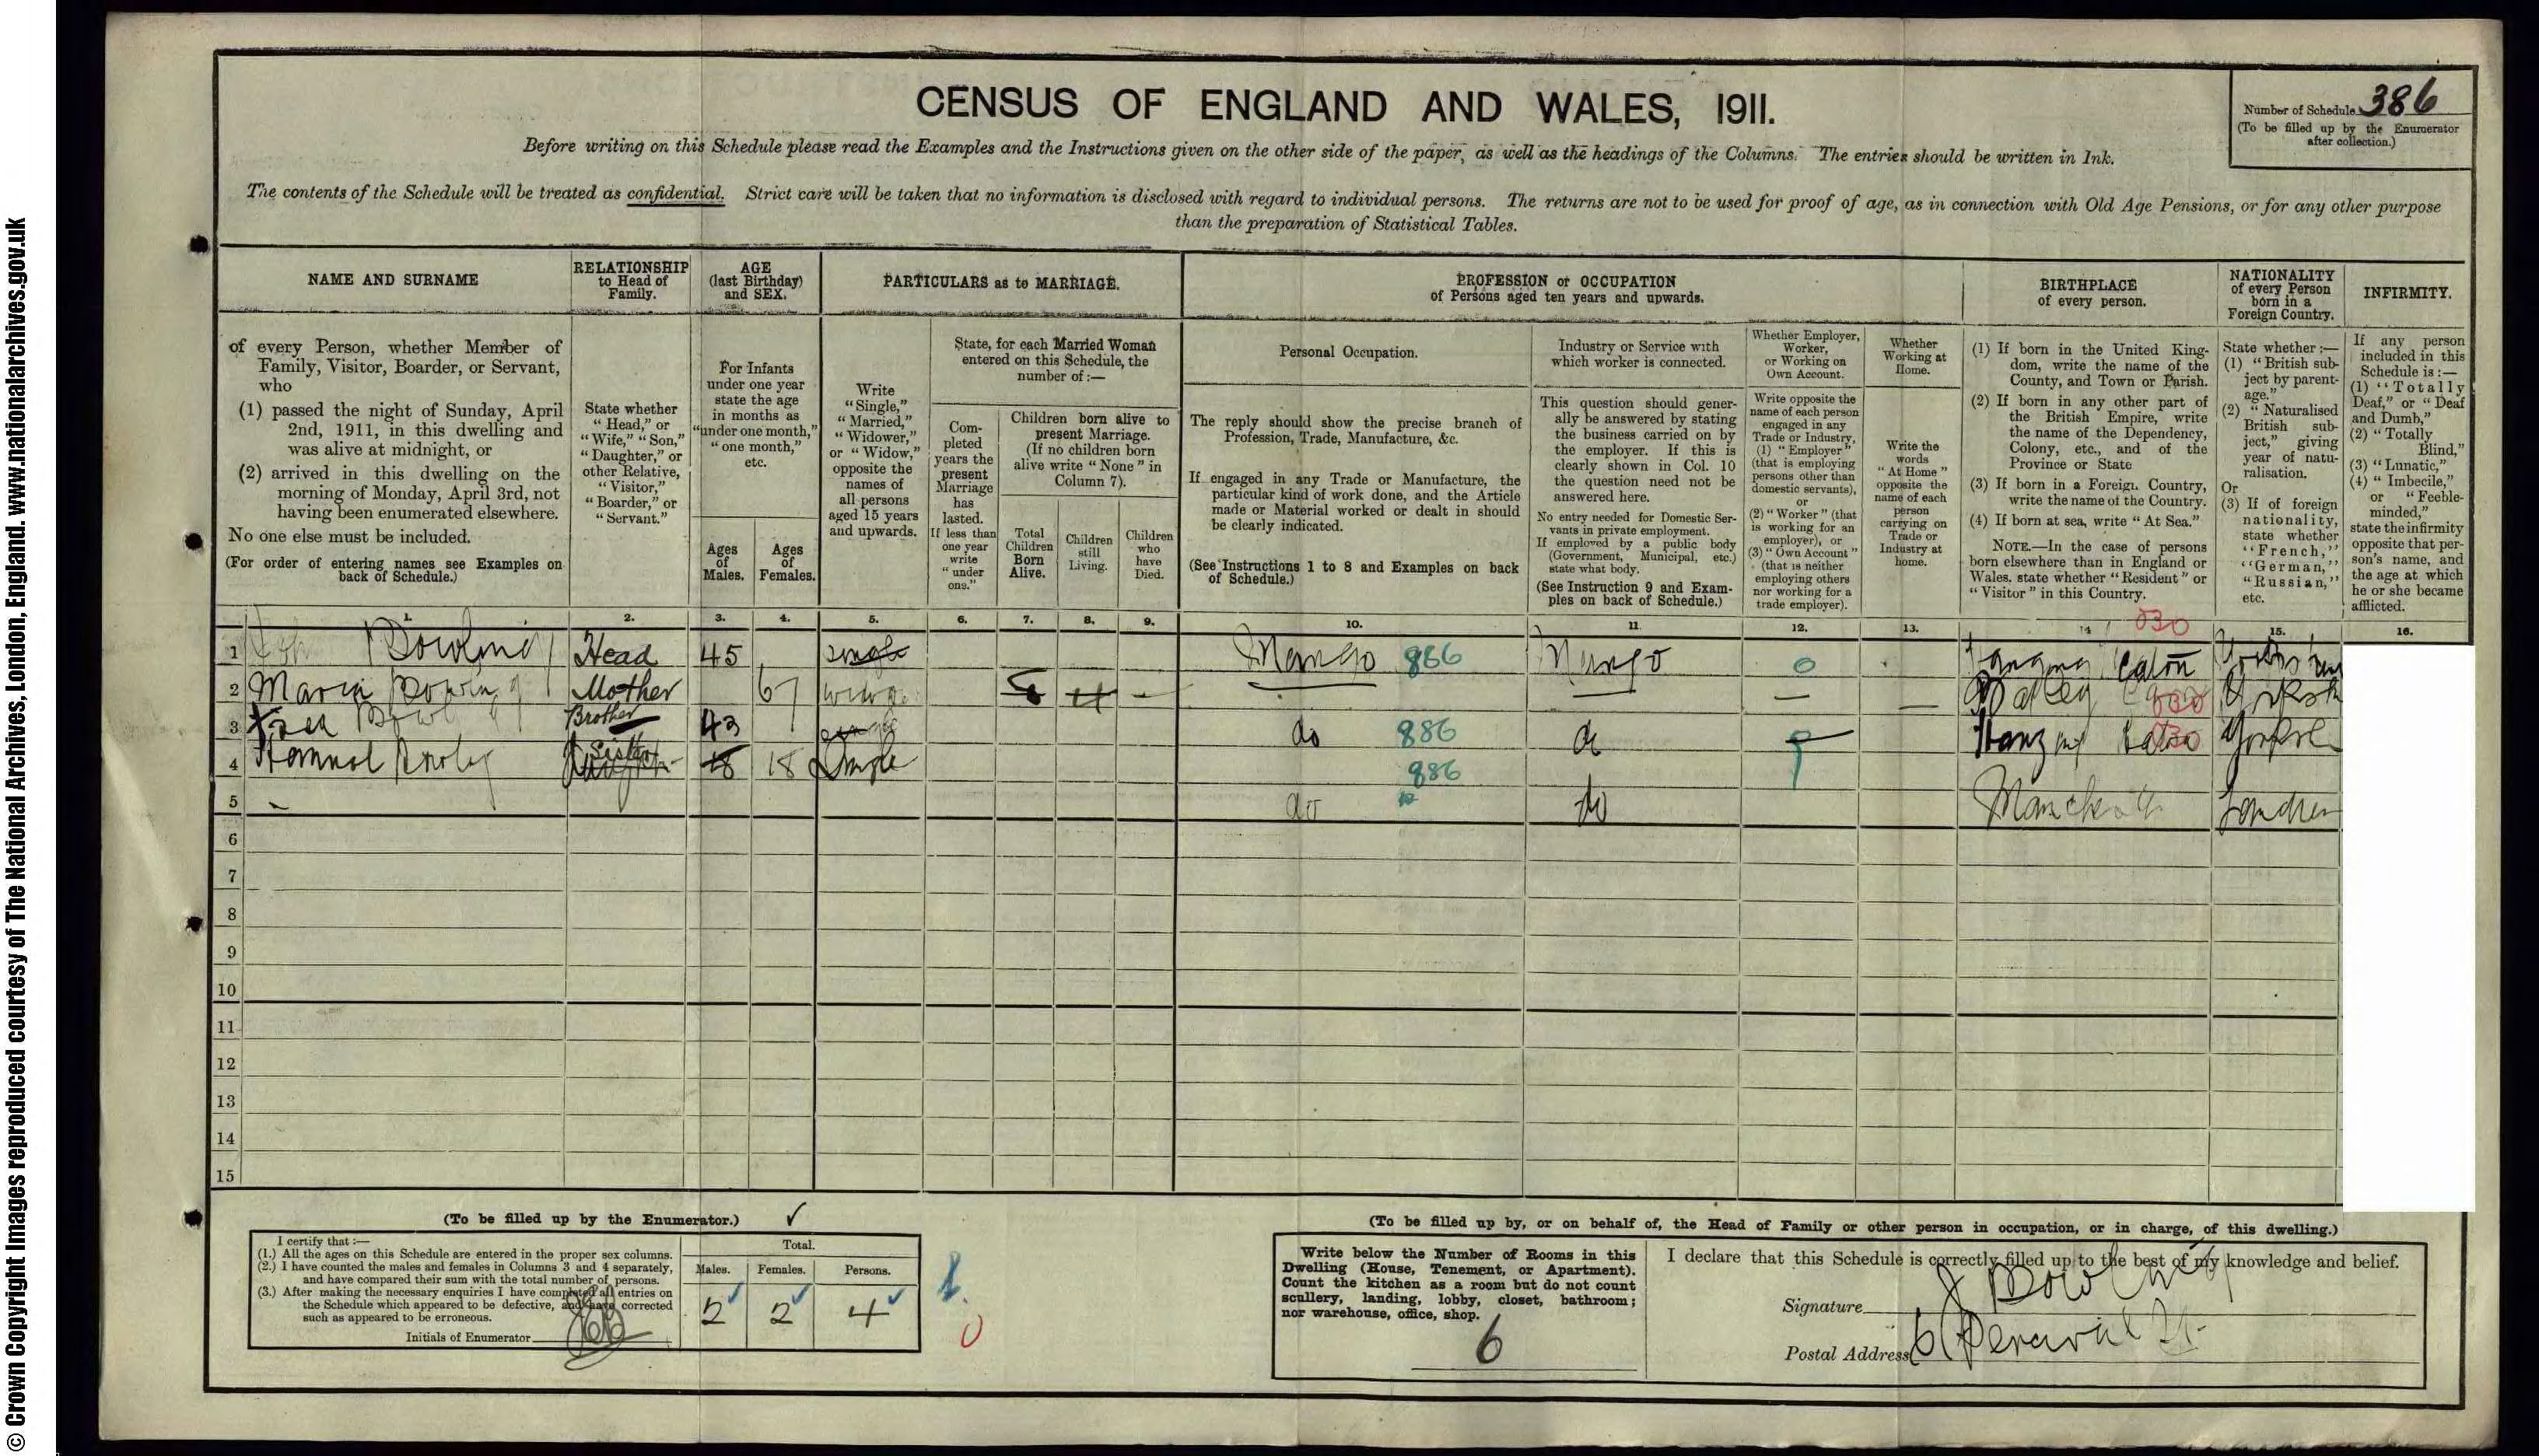 © Crown Copyright Images reproduced courtesy of The National Archives, London, England. www.nationalarchives.gov.uk
CENSUS OF ENGLAND AND WALES, 1911.
Number of Schedule 386
(To be filled up by the Enumerator after collection.)
Before writing on this Schedule please read the Examples and the Instructions given on the other side of the paper, as well as the headings of the Columns. The entries should be written in Ink.
The contents of the Schedule will be treated as confidential. Strict care will be taken that no information is disclosed with regard to individual persons. The returns are not to be used for proof of age, as in connection with Old Age Pensions, or for any other purpose
than the preparation of Statistical Tables.
NAME AND SURNAME
RELATIONSHIP
to Head of
Family.
AGE
(last Birthday)
and SEX.
PARTICULARS as to MARRIAGE.
PROFESSION or OCCUPATION
of Persons aged ten years and upwards.
BIRTHPLACE
of every person.
NATIONALITY
of every Person
born in a
Foreign Country.
INFIRMITY.
of every Person, whether Member of
Family, Visitor, Boarder, or Servant,
who
(1) passed the night of Sunday, April
2nd, 1911, in this dwelling and
was alive at midnight, or
(2) arrived in this dwelling on the
morning of Monday, April 3rd, not
having been enumerated elsewhere.
No one else must be included.
(For order of entering names see Examples on
back of Schedule.)
State whether
"Head," or
"Wife," "Son,"
"Daughter," or
other Relative,
"Visitor,"
"Boarder," or
"Servant."
For Infants
under one year
state the age
in months as
"under one month,"
"one month,"
etc.
Ages
of
Males.
Ages
of
Females.
Write
"Single,"
"Married,"
"Widower,"
or "Widow,"
opposite the
names of
all persons
aged 15 years
and upwards.
State, for each Married Woman
entered on this Schedule, the
number of:—
Com-
pleted
years the
present
Marriage
has
lasted.
If less than
one year
write
"under
one."
Children born alive to
present Marriage.
(If no children born
alive write "None" in
Column 7).
Total
Children
Born
Alive.
Children
still
Living.
Children
who
have
Died.
Personal Occupation.
The reply should show the precise branch of
Profession, Trade, Manufacture, &c.
If engaged in any Trade or Manufacture, the
particular kind of work done, and the Article
made or Material worked or dealt in should
be clearly indicated.
(See Instructions 1 to 8 and Examples on back
of Schedule.)
Industry or Service with
which worker is connected.
This question should gener-
ally be answered by stating
the business carried on by
the employer. If this is
clearly shown in Col. 10
the question need not be
answered here.
No entry needed for Domestic Ser-
vants in private employment.
If employed by a public body
(Government, Municipal, etc.)
state what body.
(See Instruction 9 and Exam-
ples on back of Schedule.)
Whether Employer,
Worker,
or Working on
Own Account.
Write opposite the
name of each person
engaged in any
Trade or Industry,
(1) "Employer"
(that is employing
persons other than
domestic servants),
or
(2) "Worker" (that
is working for an
employer), or
(3) "Own Account"
(that is neither
employing others
nor working for a
trade employer).
Whether
Working at
Home.
Write the
words
"At Home"
opposite the
name of each
person
carrying on
Trade or
Industry at
home.
(1) If born in the United King-
dom, write the name of the
County, and Town or Parish.
(2) If born in any other part of
the British Empire, write
the name of the Dependency,
Colony, etc., and of the
Province or State
(3) If born in a Foreign Country,
write the name of the Country.
(4) If born at sea, write "At Sea."
NOTE.—In the case of persons
born elsewhere than in England or
Wales, state whether "Resident" or
"Visitor" in this Country.
State whether:—
(1) "British sub-
ject by parent-
age."
(2) "Naturalised
British sub-
ject," giving
year of natu-
ralisation.
Or
(3) If of foreign
nationality,
state whether
"French,"
"German,"
"Russian,"
etc.
If any person
included in this
Schedule is:—
(1) "Totally
Deaf," or "Deaf
and Dumb,"
(2) "Totally
Blind,"
(3) "Lunatic,"
(4) "Imbecile,"
or "Feeble-
minded,"
state the infirmity
opposite that per-
son's name, and
the age at which
he or she became
afflicted.
1. 2. 3. 4. 5. 6. 7. 8. 9. 10. 11. 12. 13. 14 15. 16.
530
1 Bowling Head 45 single 886 0
2 Maria Mother 67 Batley
3 Brother 43 do 886
4 Sister 18 18 Single 886
5 do do
6
7
8
9
10
11
12
13
14
15
(To be filled up by the Enumerator.)
I certify that:—
(1.) All the ages on this Schedule are entered in the proper sex columns.
(2.) I have counted the males and females in Columns 3 and 4 separately,
and have compared their sum with the total number of persons.
(3.) After making the necessary enquiries I have completed all entries on
the Schedule which appeared to be defective, and have corrected
such as appeared to be erroneous.
Initials of Enumerator
Total.
Males. Females. Persons.
2 2 4
0
(To be filled up by, or on behalf of, the Head of Family or other person in occupation, or in charge, of this dwelling.)
Write below the Number of Rooms in this
Dwelling (House, Tenement, or Apartment).
Count the kitchen as a room but do not count
scullery, landing, lobby, closet, bathroom;
nor warehouse, office, shop.
6
I declare that this Schedule is correctly filled up to the best of my knowledge and belief.
Signature J Bowling
Postal Address 6 Percival St